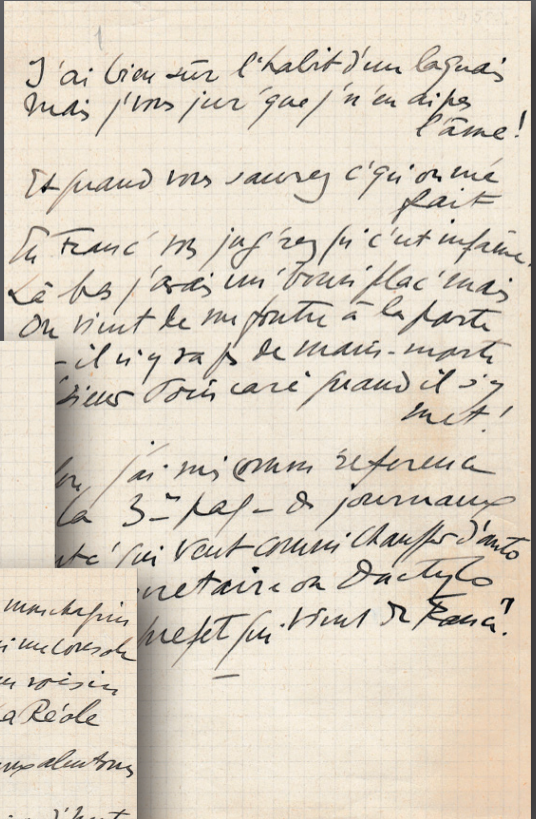 1
J'ai bien sûr l'habit d'un laquais
Mais j'vous jur' que j'n'en ai pas
l'âme!
Et quand vous saurez c'qu'on m'a
fait
En Franc' vous jug'rez qu'c'est infâme.
Là bas j'avais un' bonn' plac' mais
On vient de me foutre à la porte
il n'y va pas de main-morte
sieur Poincaré quand il s'y
met!
j'ai mis comm' référence
la 3e pag- des journaux
qui veut comm' chauffr d'auto
cretaire ou Dactylo
prefet qui vient de France?
mon chagrin
me console
un voisin
La Réole
alentours